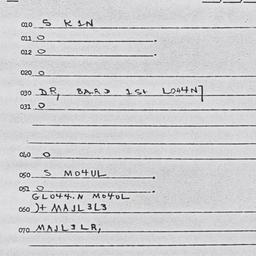 010 S K1N
011 O
012 O
020 O
030 DR, BARD 1St LO44N
031 O
040 O
050 S MO4UL
051 O
GLO44.N MO4OL
060 )+ MAJL3L3
070 MAJL3LR,